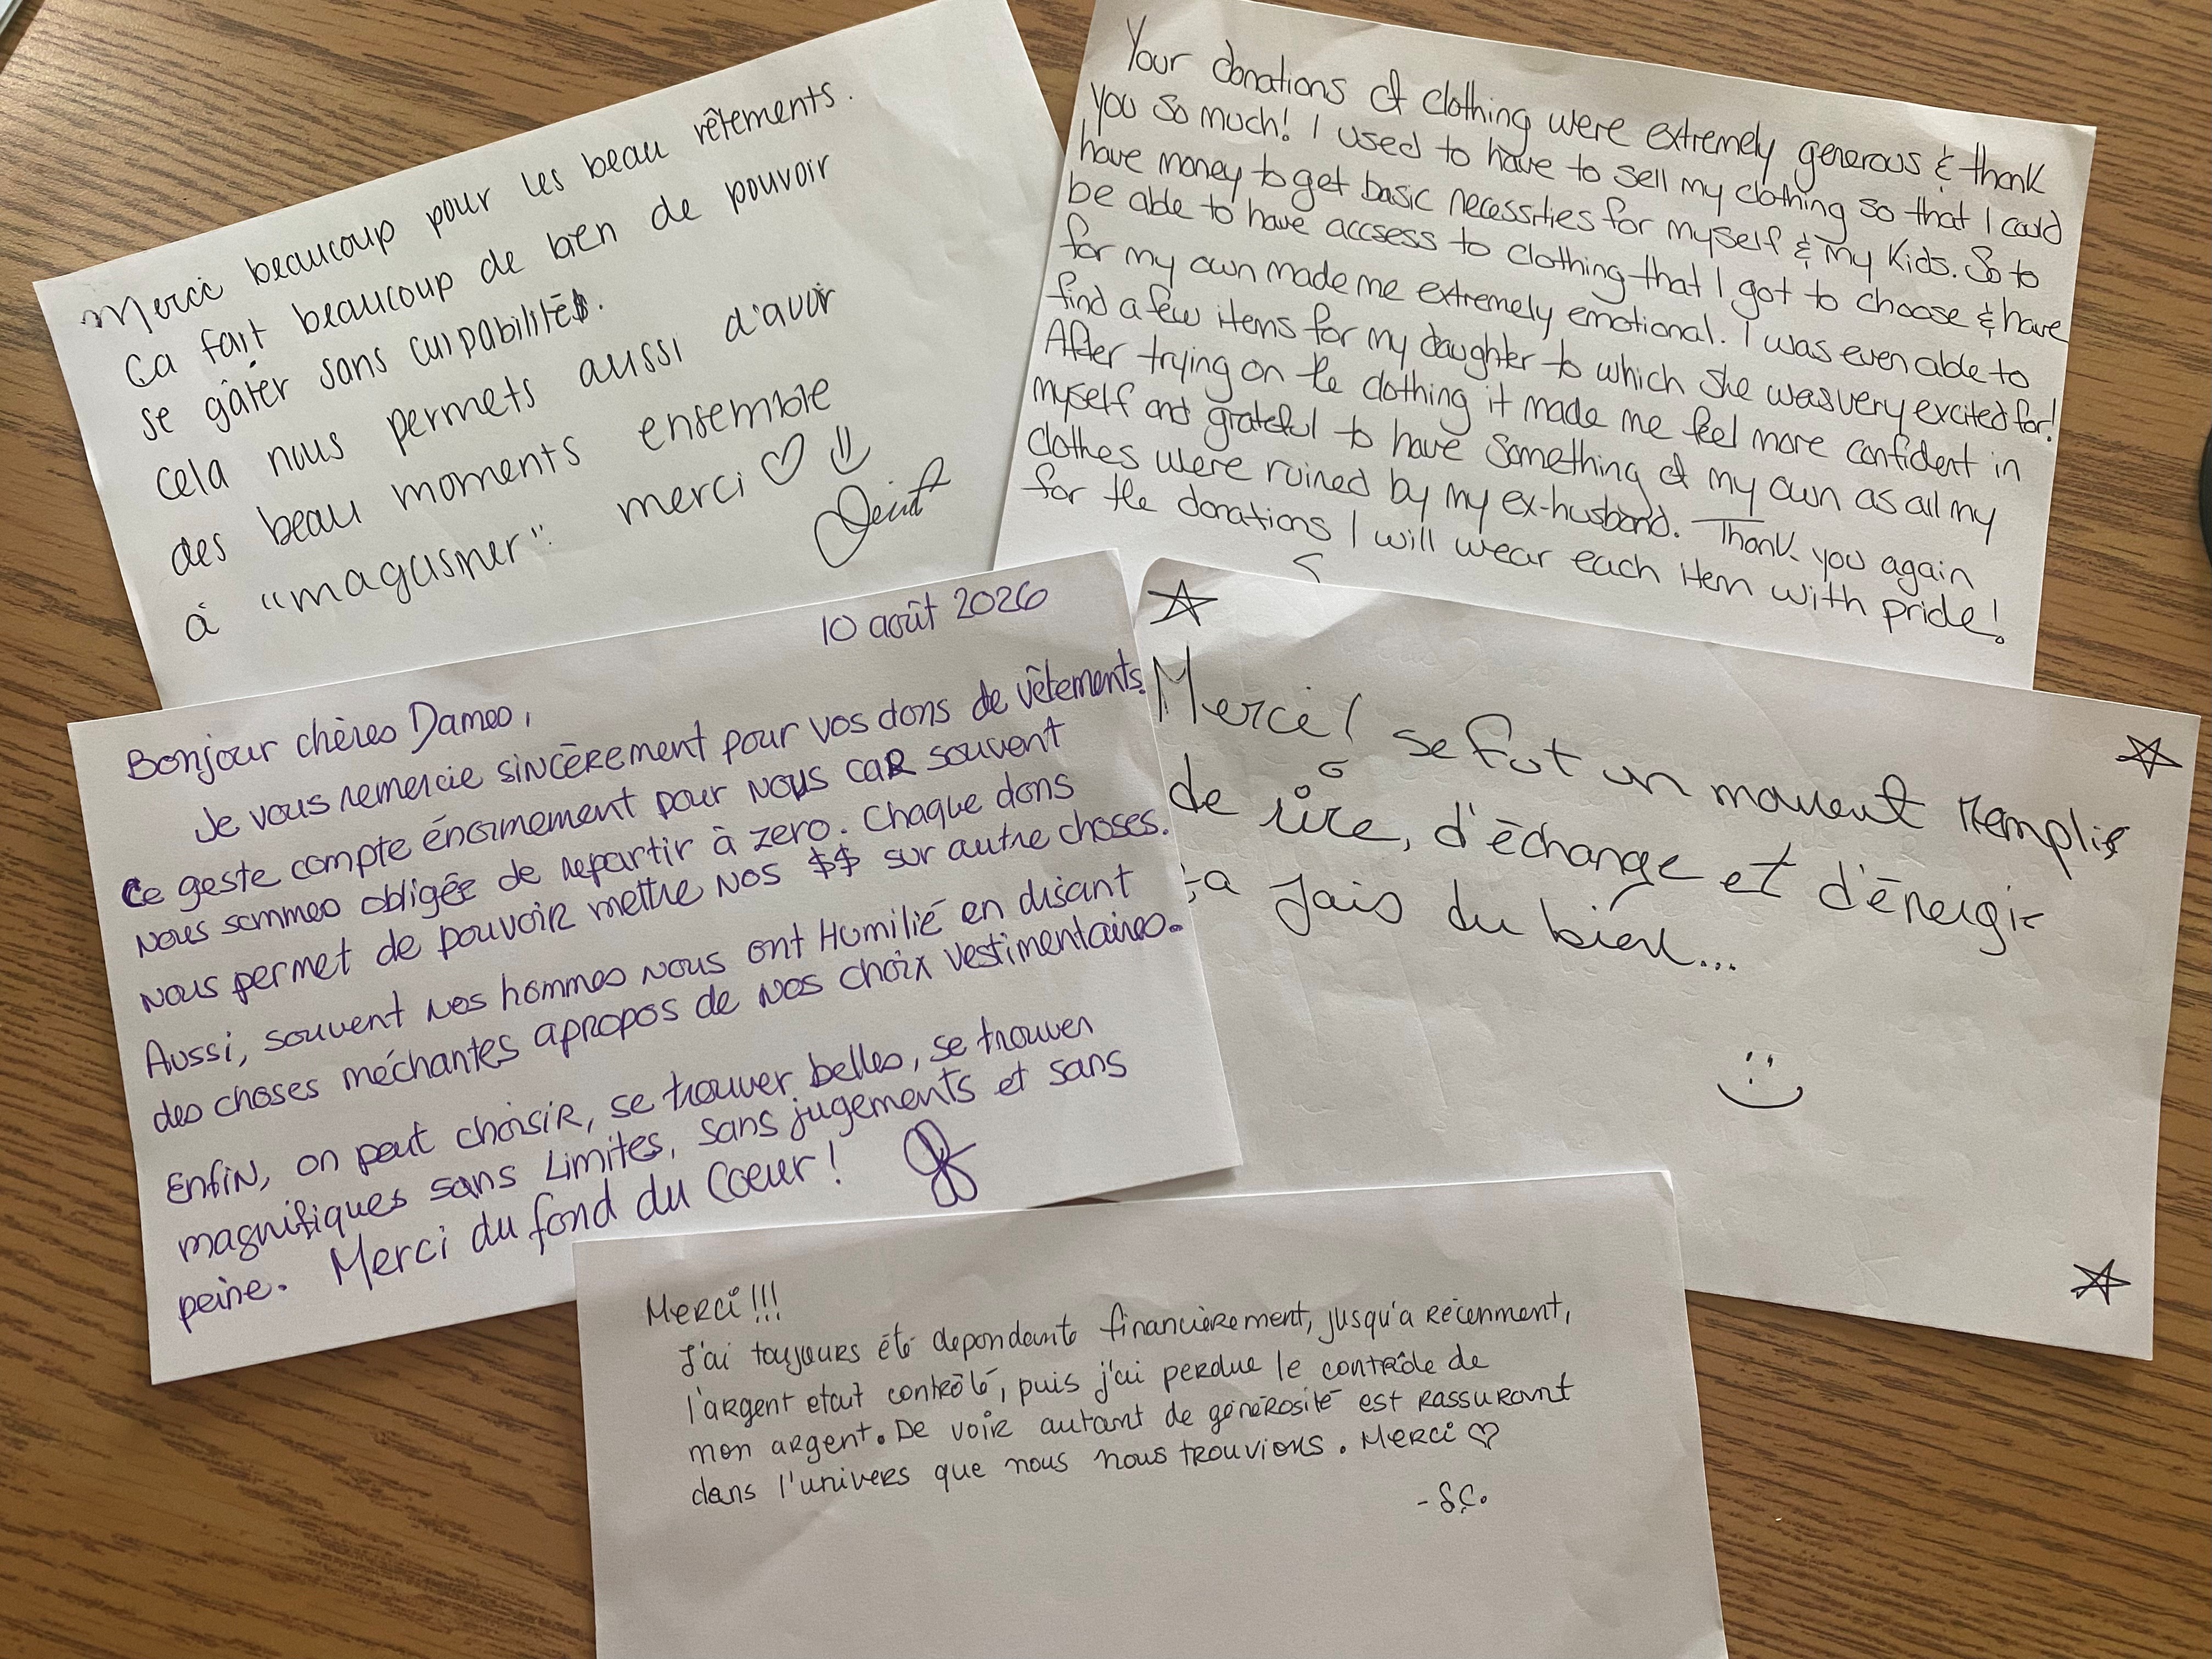 Merci beaucoup pour les beau vêtements.
Ca fait beaucoup de bien de pouvoir
se gâter sans culpabilités.
cela nous permets aussi d'avoir
des beau moments ensemble
à "magasiner". merci ♡
Your donations of clothing were extremely generous & thank
you so much! I used to have to sell my clothing so that I could
have money to get basic necessities for myself & my kids. So to
be able to have accsess to clothing that I got to choose & have
for my own made me extremely emotional. I was even able to
find a few items for my daughter to which she was very excited for!
After trying on the clothing it made me feel more confident in
myself and grateful to have something of my own as all my
clothes were ruined by my ex-husband. Thank you again
for the donations I will wear each item with pride!
10 août 2026
Bonjour chères Dames,
Je vous remercie sincèrement pour vos dons de vêtements.
Ce geste compte énormement pour nous car souvent
nous sommes obligée de repartir à zero. Chaque dons
nous permet de pouvoir mettre nos $$ sur autre choses.
Aussi, souvent nos hommes nous ont Humilié en disant
des choses méchantes apropos de nos choix vestimentaires.
Enfin, on peut choisir, se trouver belles, se trouver
magnifiques sans Limites, sans jugements et sans
peine. Merci du fond du Coeur!
Merci! se fut un moment remplis
de rire, d'échange et d'énergie
ça fais du bien...
Merci!!!
J'ai toujours été dependante financièrement, jusqu'a récenment,
l'argent etait contrôlé, puis j'ai perdue le contrôle de
mon argent. De voir autant de générosité est rassurant
dans l'univers que nous nous trouvions. Merci ♡
- S.C.